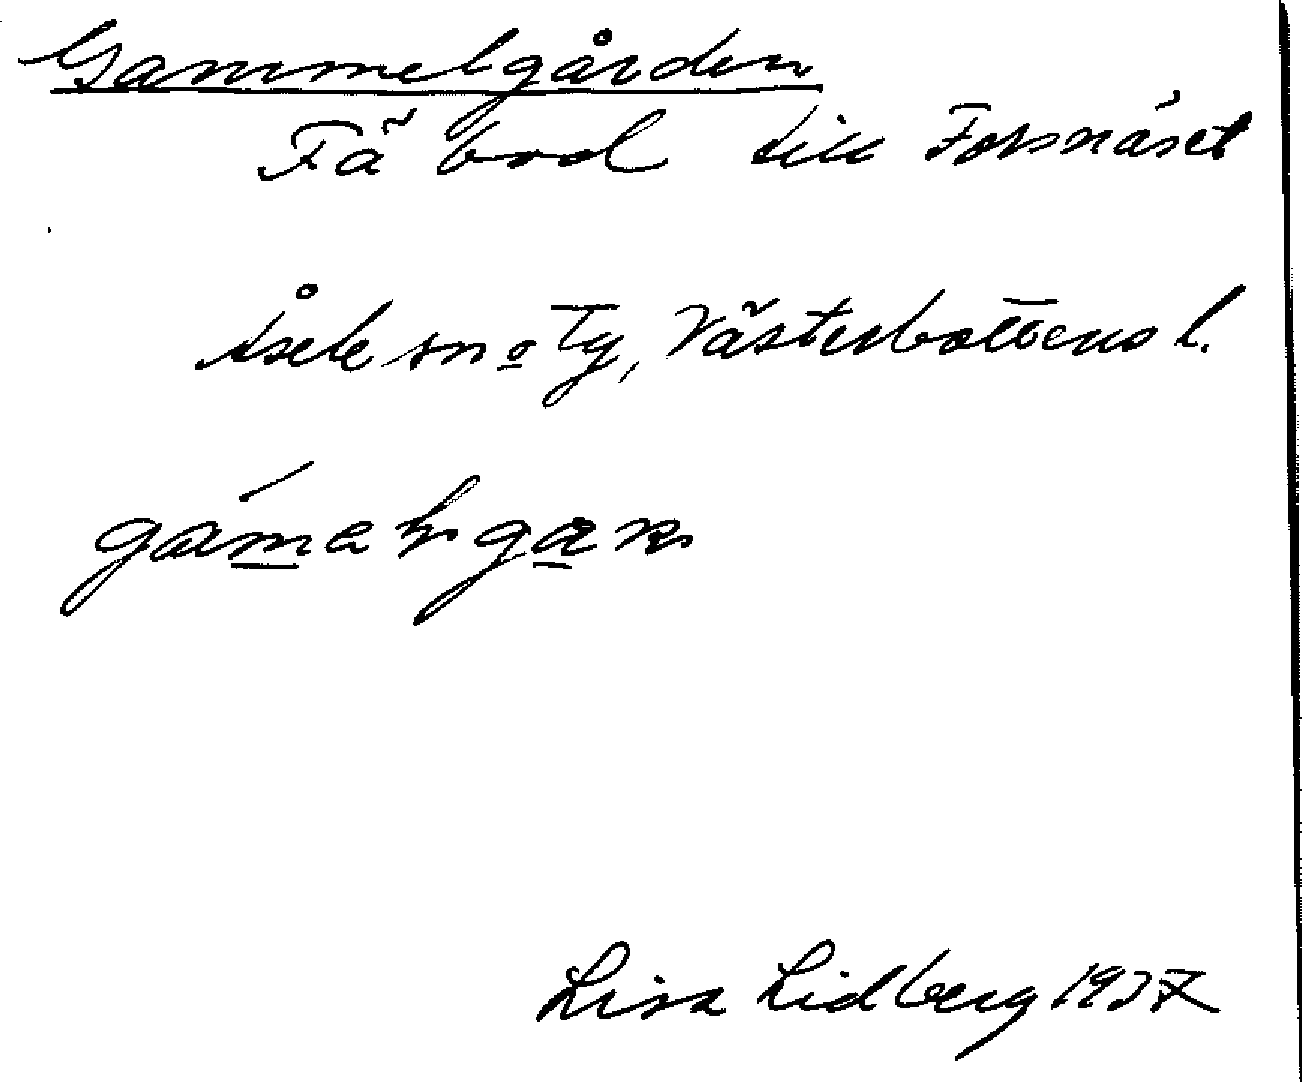 Gammelgården
Fäbod till Forsnäset
Åsele sn o Tg, Västerbottens l.
Lisa Lidberg 1937